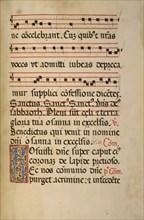 ne cōcelebrant. Cū quib⁹ et nr̄as
voces ut admitti iubeas depreca
mur supplici cōfessione dicētes.
Sanctus. Sanct⁹. Sanct⁹. Dn̄s de⁹
sabbaoth. Pleni sūt celi et terra
gloria tua osanna in excelsis.
Benedictus qui venit in nomine
Dn̄i osanna in excelsis. Com̄.
Posuisti dn̄e super caput ei⁹
coronaz de lapide pretioso.
Et nos cōmunio dn̄e Cōp̄.
purget a crimine: et